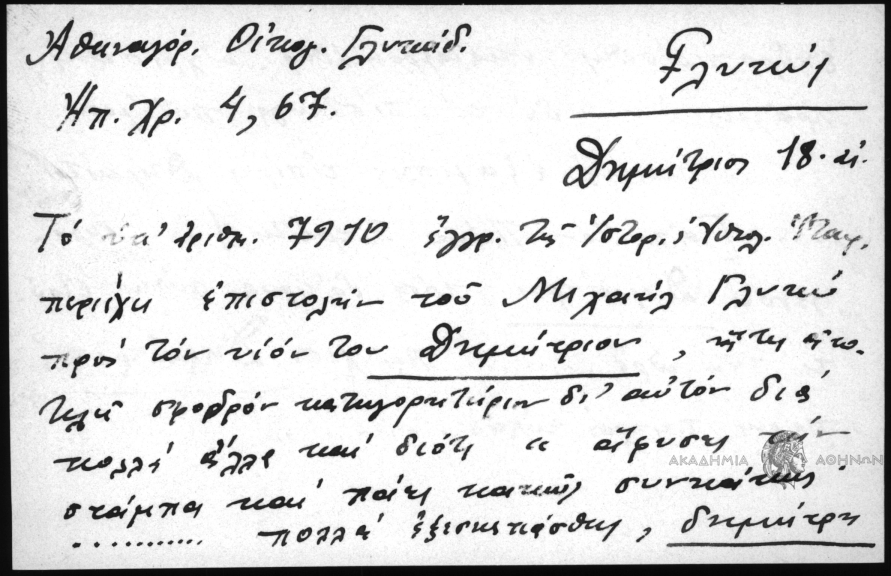 Ἀθηναγόρ. Οἰκογ. Γλυκάδ.
Ἠπ. Χρ. 4, 67.
Γλυκύς
Δημήτριος 18. αἰ.
Τό ὑπ' ἀριθμ. 7910 ἔγγρ. τῆς Ἱστορ.
περιέχει ἐπιστολήν τοῦ Μιχαήλ Γλυκύ
πρός τόν υἱόν του Δημήτριον, ἥτις ἀπο-
τελεῖ σφοδρόν κατηγορητήριον δι' αὐτόν διά
πολλά ἄλλα καί διότι « ἄφησες τήν
στάμπα καί πάει κακῶς
.......... πολλά ἐξεσκεπάσθης, δημήτρη
ΑΚΑΔΗΜΙΑ ΑΘΗΝΩΝ